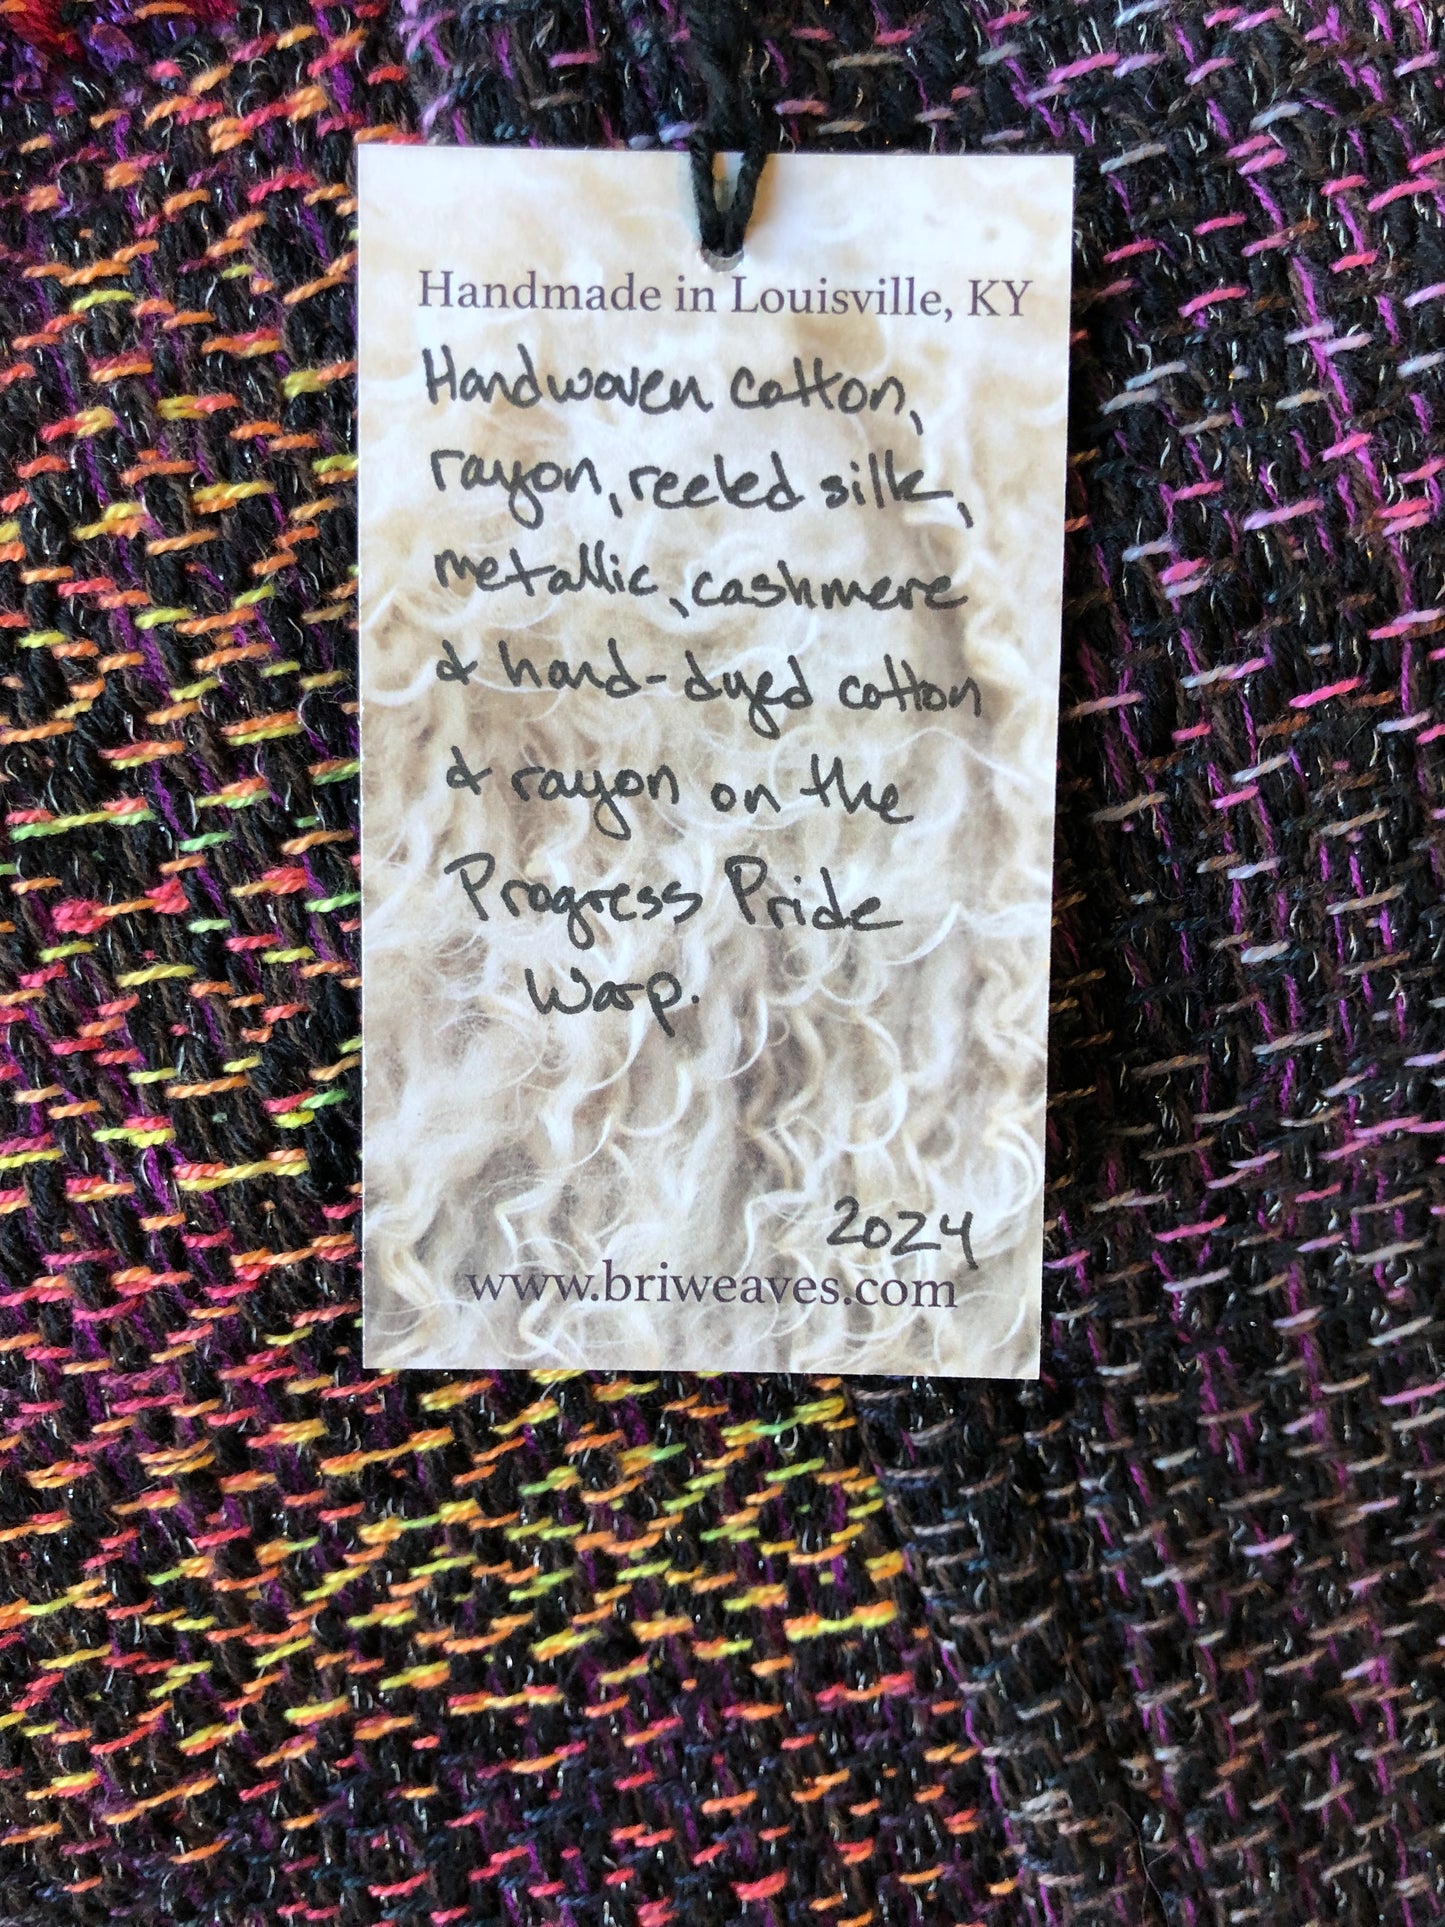 Handmade in Louisville, KY
Handwoven cotton,
rayon, reeled silk,
metallic, cashmere
& hand-dyed cotton
& rayon on the
Progress Pride
Warp.
2024
www.briweaves.com